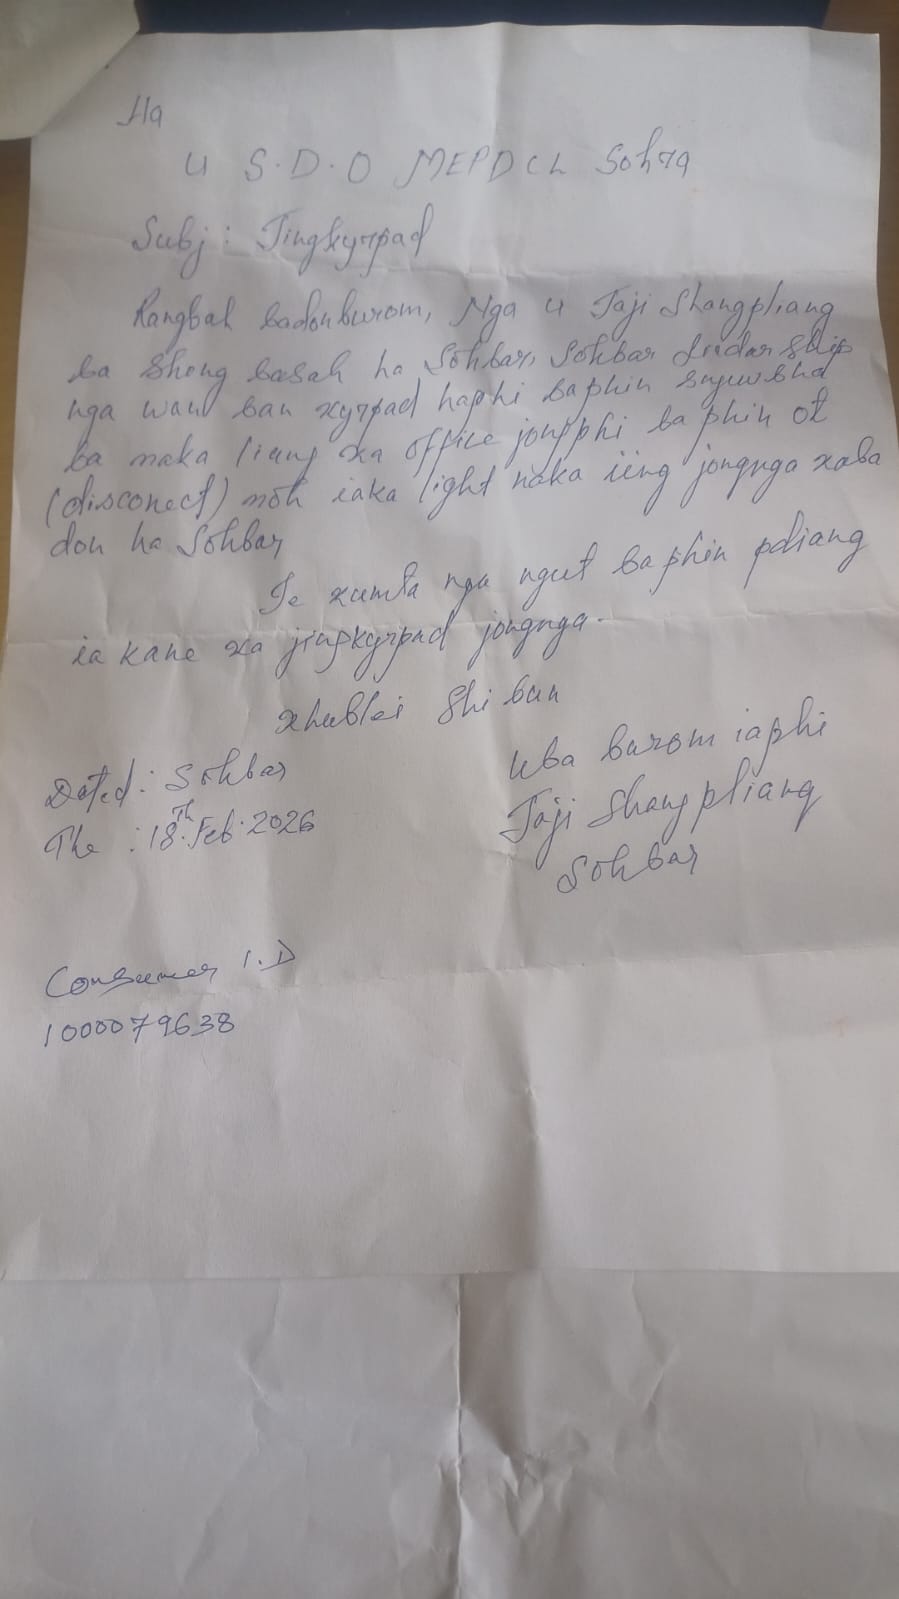 Ha
U S.D.O MEPDCL Sohra
Subj: Jingkyrpad
Rangbah badonburom, Nga u Jaji Shangpliang
ba shong basah ha Sohbar, Sohbar Sirdarship
nga wan ban kyrpad haphi baphin sngewbha
ba naka liang ka office jongphi ba phin ot
(disconect) noh iaka light naka iing jongnga kaba
don ha Sohbar
Te kumta nga ngut baphin pdiang
ia kane ka jingkyrpad jongnga.
Khublei Shi bun
Uba burom iaphi
Dated: Sohbar
Jaji Shangpliang
The : 18th Feb. 2026
Sohbar
Consumer I.D
1000079638